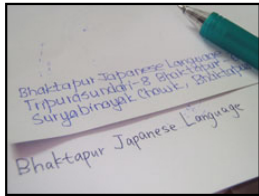 Bhaktapur Japanese Language
Tripurasundari-8 Bhaktapur
Suryabinayak Chowk, Bhaktapur
Bhaktapur Japanese Language